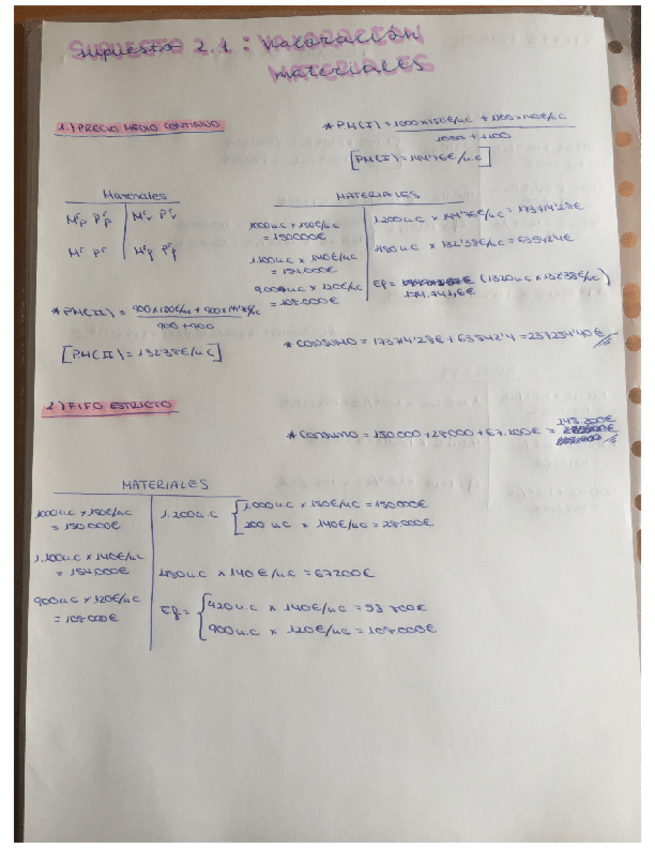 Supuesto 2.1: Valoración
materiales
1.) PRECIO MEDIO CONTINUO
* PM(I) = 1000x150€/uc + 1100x140€/uc
1000 + 1100
[PM(I) = 144'76€/u.c]
Materiales
MATERIALES
1000u.c x 150€/uc
= 150.000€
1.100u.c x 140€/uc
= 154.000€
900u.c x 120€/uc
= 108.000€
1.200u.c x 144'76€/u.c = 173714'28€
480u.c x 132'38€/uc = 63542'4€
Ef = (1320u.c x 132'38€/uc)
174.741,6€
* PM(II) = 900x120€/uc + 900x144'76€/uc
900 + 900
[PM(II) = 132'38€/u.c]
* CONSUMO = 173714'28€ + 63542'4 =
2.) FIFO ESTRICTO
* CONSUMO = 150.000 + 28.000 + 67.200€ = 245.200€
MATERIALES
1000u.c x 150€/uc
= 150.000€
1.100u.c x 140€/uc
= 154.000€
900u.c x 120€/uc
= 108.000€
1.200u.c
1.000u.c x 150€/uc = 150.000€
200 u.c x 140€/uc = 28.000€
480u.c x 140€/uc = 67200€
Ef =
420u.c x 140€/uc = 58'800€
900u.c x 120€/uc = 108.000€